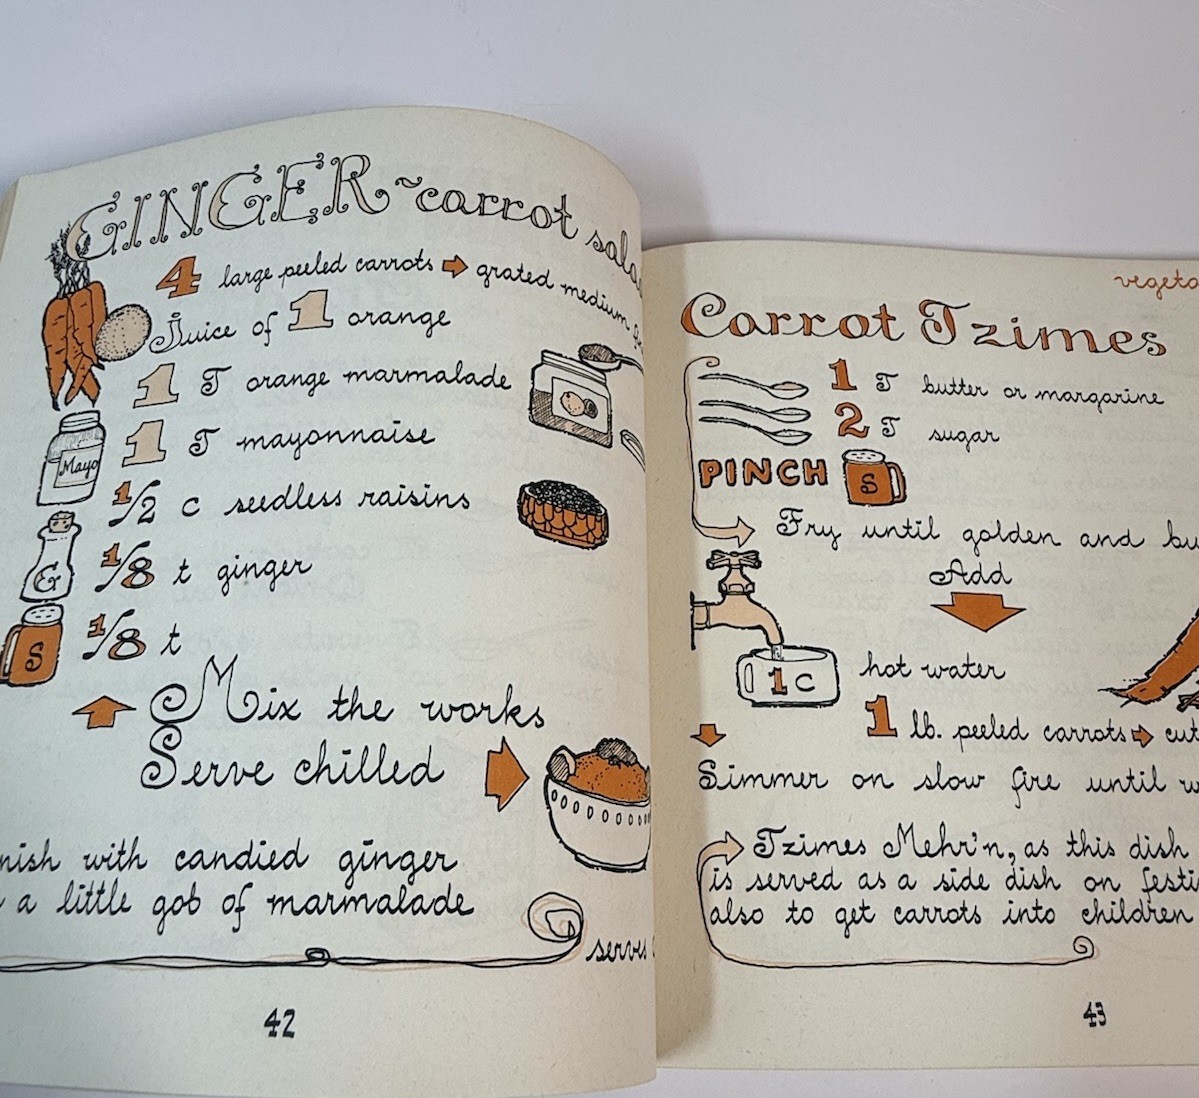 GINGER ~ carrot
4 large peeled carrots grated medium
Juice of 1 orange
1 T orange marmalade
1 T mayonnaise
Mayo
1/2 c seedless raisins
G
1/8 t ginger
S
1/8 t
Mix the works
Serve chilled
nish with candied ginger
a little gob of marmalade
serves
42
vegeta
Carrot Tzimes
1 T butter or margarine
2 T sugar
PINCH S
Fry until golden and bu
Add
1 C hot water
1 lb. peeled carrots cut
Simmer on slow fire until w
Tzimes Mehr'n, as this dish
is served as a side dish on festi
also to get carrots into children
43